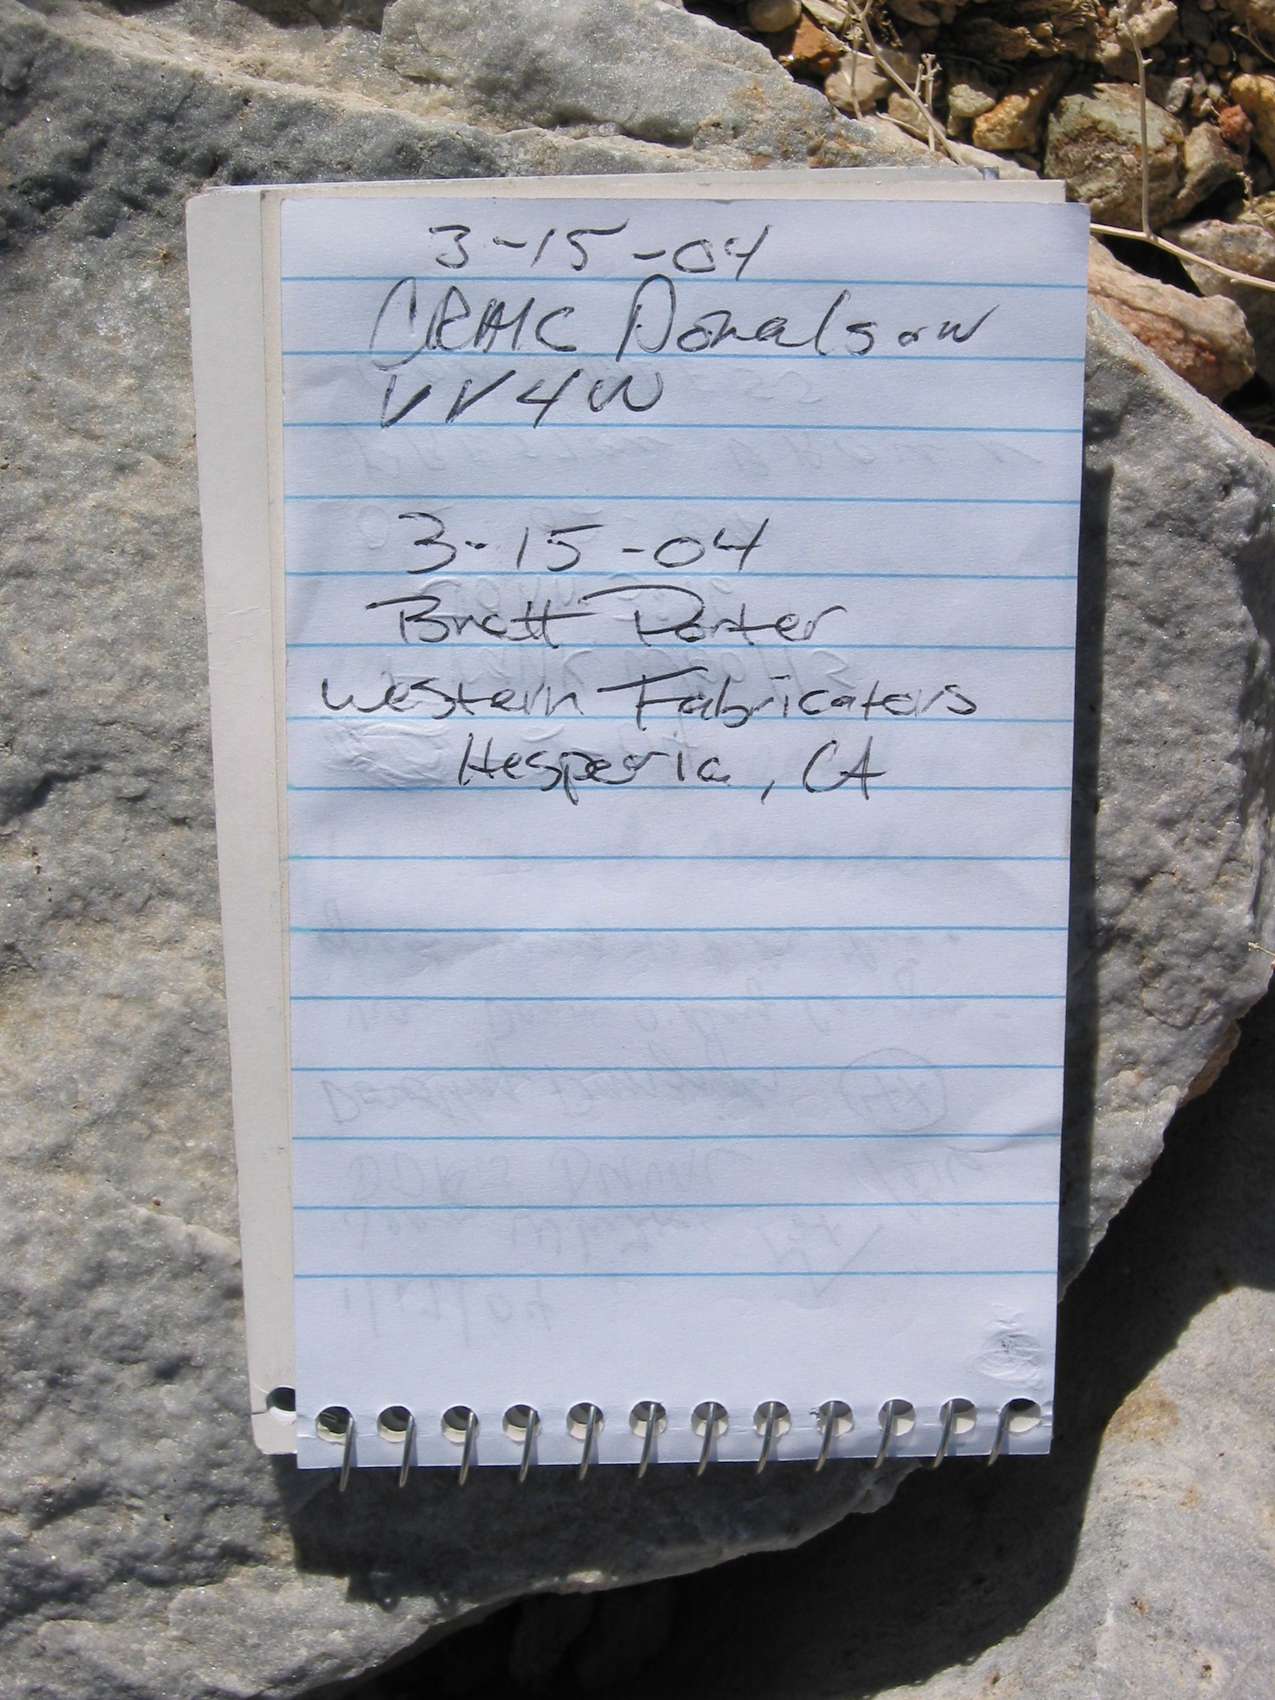 3-15-04
CRAIC Donalson
VV4W
3-15-04
Brett Porter
Western Fabricators
Hesperia, CA